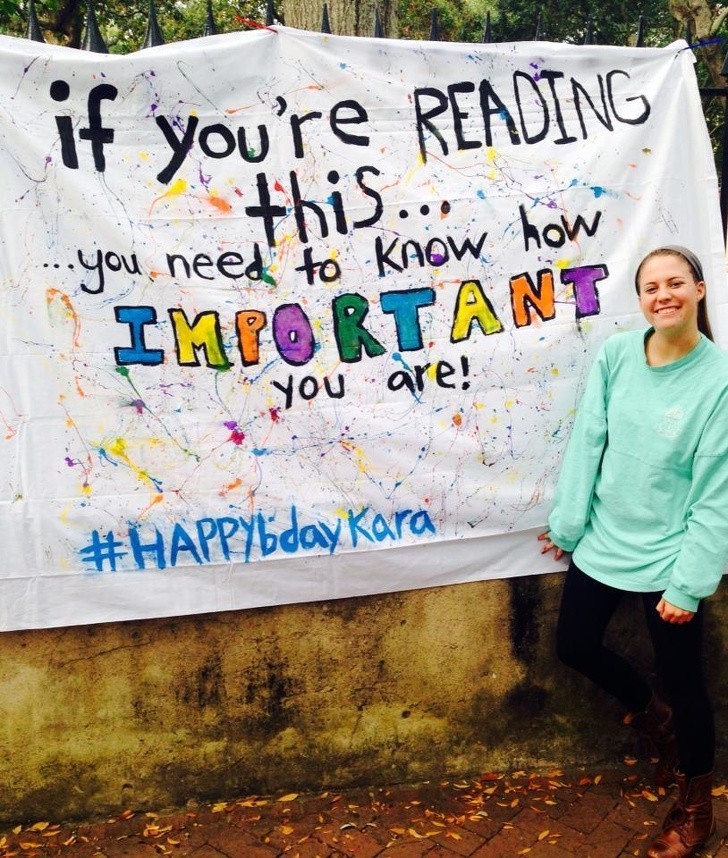 if you're READING
this...
...you need to know how
IMPORTANT
you are!
#HAPPYbday Kara